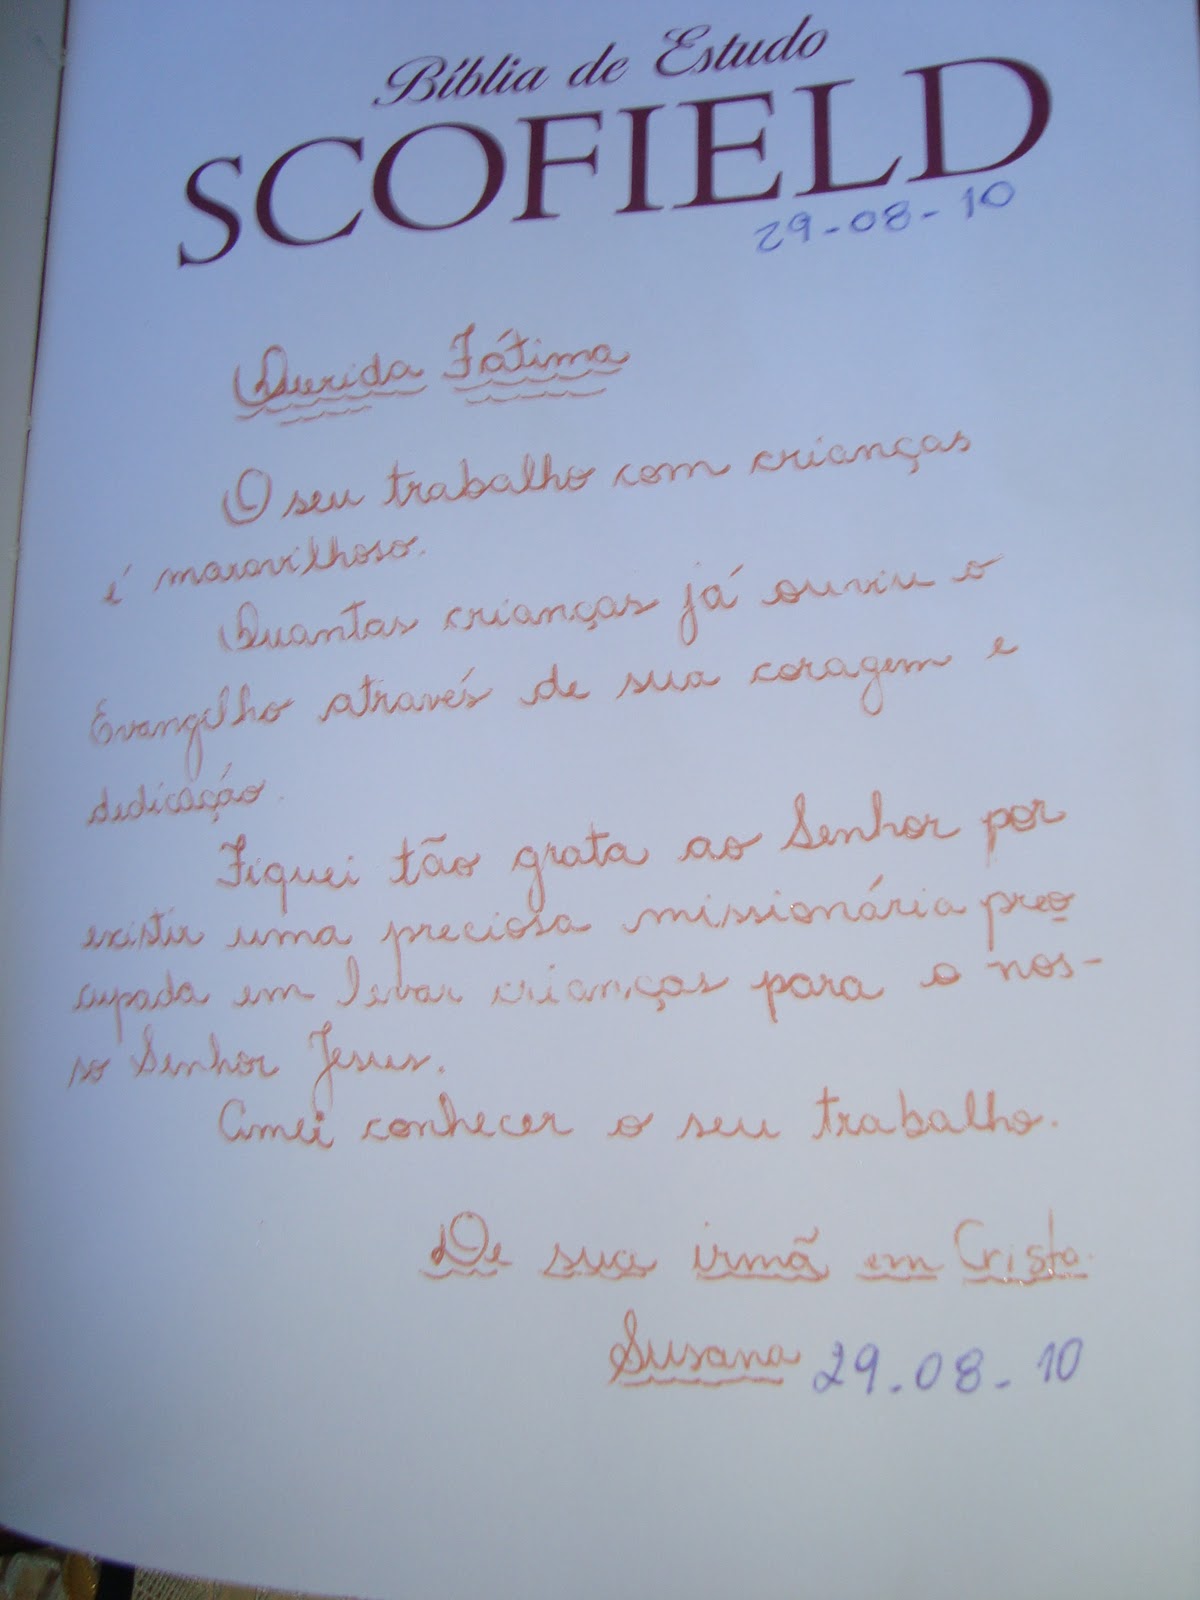 Bíblia de Estudo
SCOFIELD
29-08-10
Querida Fátima
O seu trabalho com crianças
é maravilhoso.
Quantas crianças já ouviu o
Evangelho através de sua coragem e
dedicação.
Fiquei tão grata ao Senhor por
existir uma preciosa missionária preo
cupada em levar crianças para o nos-
so Senhor Jesus.
Amei conhecer o seu trabalho.
De sua irmã em Cristo.
Susana 29-08-10